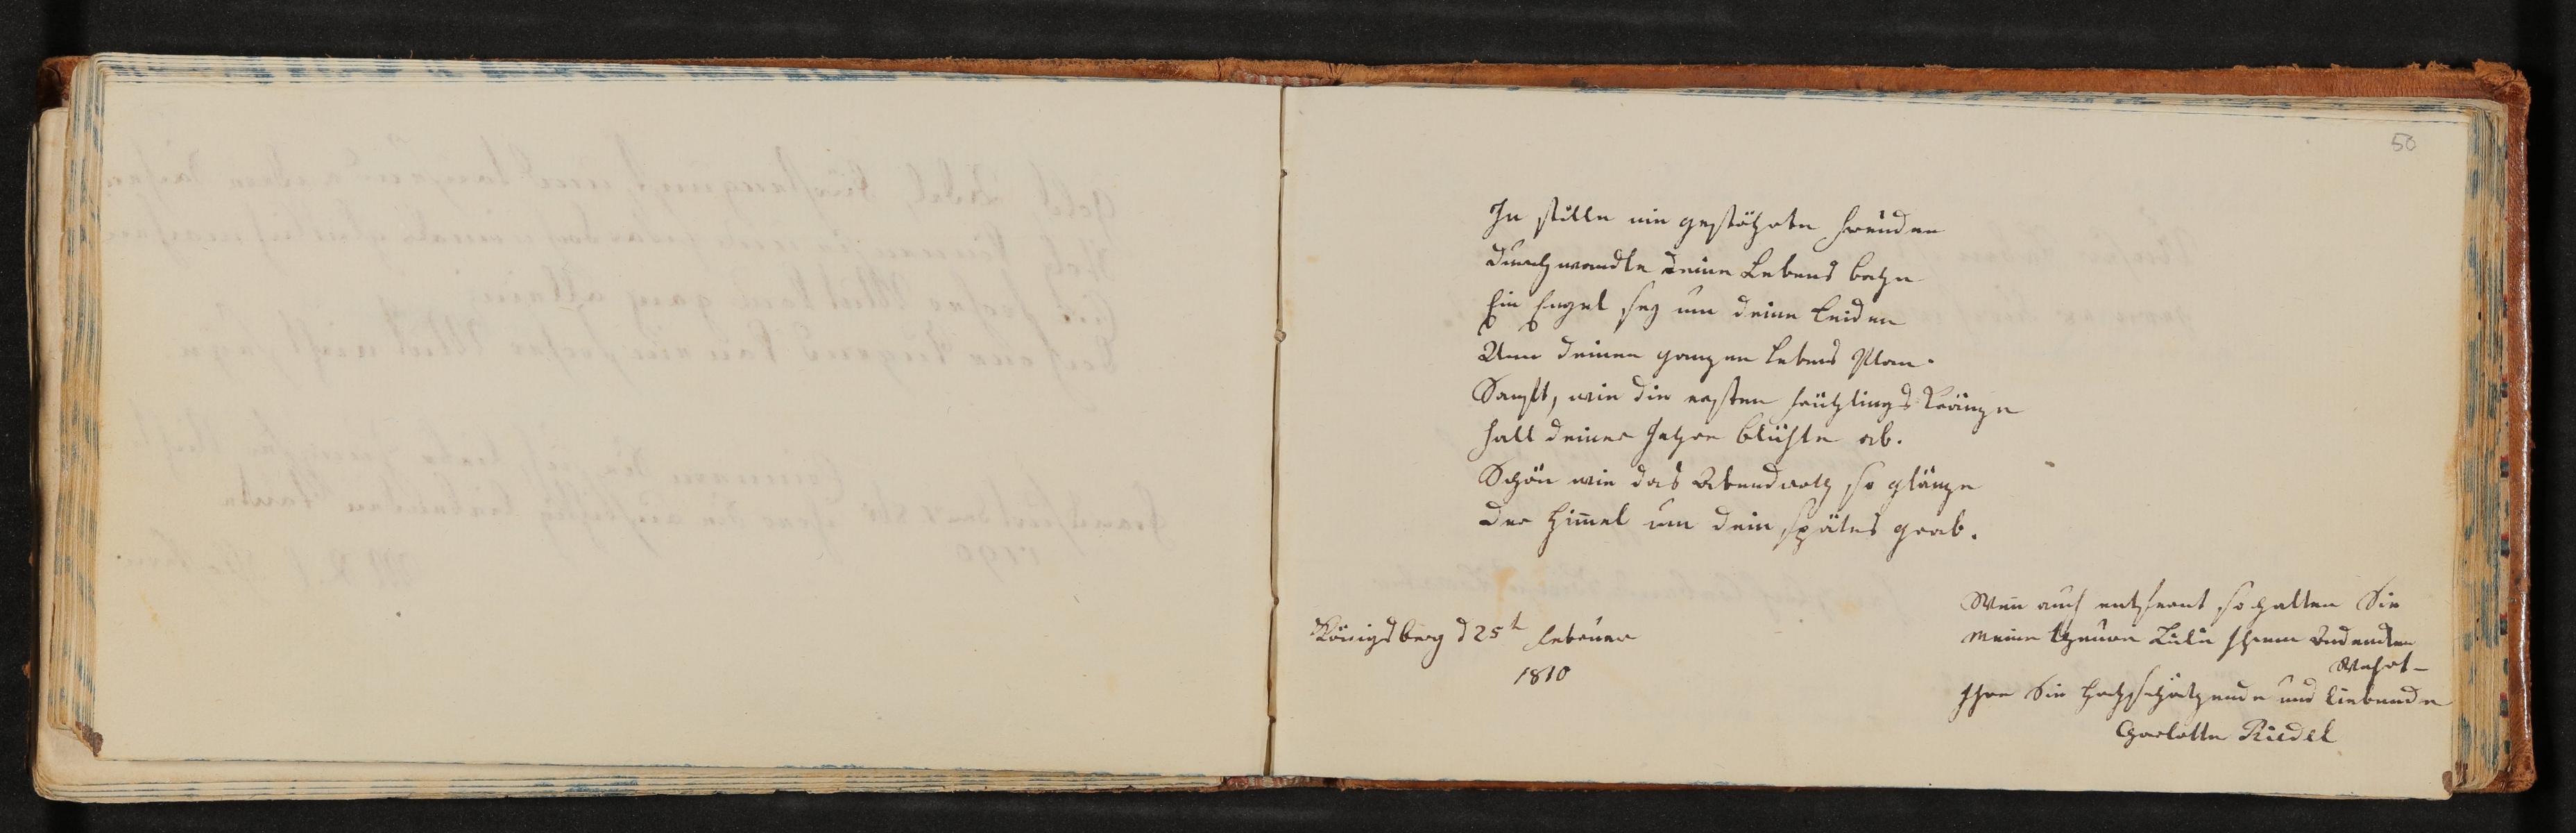 50
In stille nie gestöhrte freuden
Durchwandle deine Lebens bahn
Ein Engel sey um deine Leiden
Um deinen ganzen Lebens Plan.
Sanft, wie die ersten frühlings Kränze
fall deiner Jahre blühte ab.
Schön wie das Abendroth so glänze
der Himel um dein spätes grab.
Königsberg d 25t februar
1810
Wen auch entfernt so halten Sie
meine theure Lulu Ihrem Andenken
Wehrt-
Ihre Sie hochschätzende und liebende
Charlotte Riedel